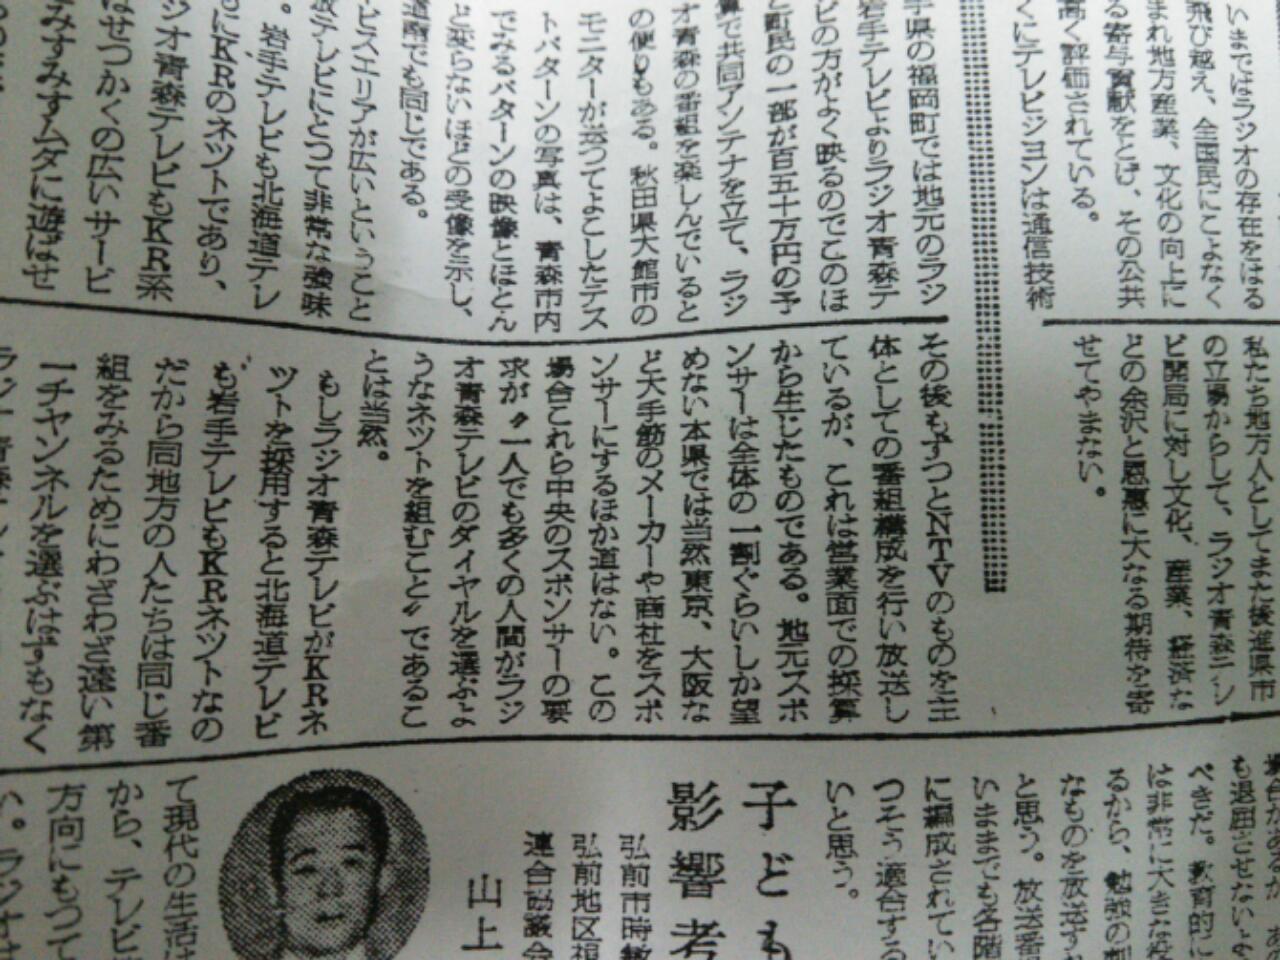 いまではラジオの存在をはる
飛び越え、全国民にこよなく
まれ地方産業、文化の向上に
る寄与貢献をとげ、その公共
高く評価されている。
くにテレビジョンは通信技術
手県の福岡町では地元のラジ
岩手テレビよりラジオ青森テ
ビの方がよく映るのでこのほ
と町民の一部が百五十万円の予
算で共同アンテナを立て、ラジ
オ青森の番組を楽しんでいると
の便りもある。秋田県大館市の
モニターが送つてよこしたテス
トパターンの写真は、青森市内
でみるパターンの映像とほとん
と変らないほどの受像を示し、
道南でも同じである。
ビスエリアが広いということ
放テレビにとつて非常な強味
。岩手テレビも北海道テレ
もにKRのネツトであり、
ジオ青森テレビもKR系
はせつかくの広いサービ
みすみすムダに遊ばせ
私たち地方人としてまた後進県市
の立場からして、ラジオ青森テレ
ビ開局に対し文化、産業、経済な
どの余沢と恩恵に大なる期待を寄
せてやまない。
その後もずつとNTVのものを主
体としての番組構成を行い放送し
ているが、これは営業面での採算
から生じたものである。地元スポ
ンサーは全体の一割ぐらいしか望
めない本県では当然東京、大阪な
ど大手筋のメーカーや商社をスポ
ンサーにするほか道はない。この
場合これら中央のスポンサーの要
求が〝一人でも多くの人間がラジ
オ青森テレビのダイヤルを選ぶよ
うなネツトを組むこと〟であるこ
とは当然。
もしラジオ青森テレビがKRネ
ツトを採用すると北海道テレビ
も岩手テレビもKRネツトなの
だから同地方の人たちは同じ番
組をみるためにわざわざ遠い第
一チヤンネルを選ぶはずもなく
も退屈させないよ
べきだ。教育的に
は非常に大きな役
るから、勉強の
なものを放送す
と思う。放送番
いままでも各階
に編成されてい
つそう適合する
いと思う。
子ども
影響考
弘前市時敏
弘前地区視
連合協議会
山上
て現代の生活は
から、テレビ
方向にもつて
い。ラジオ